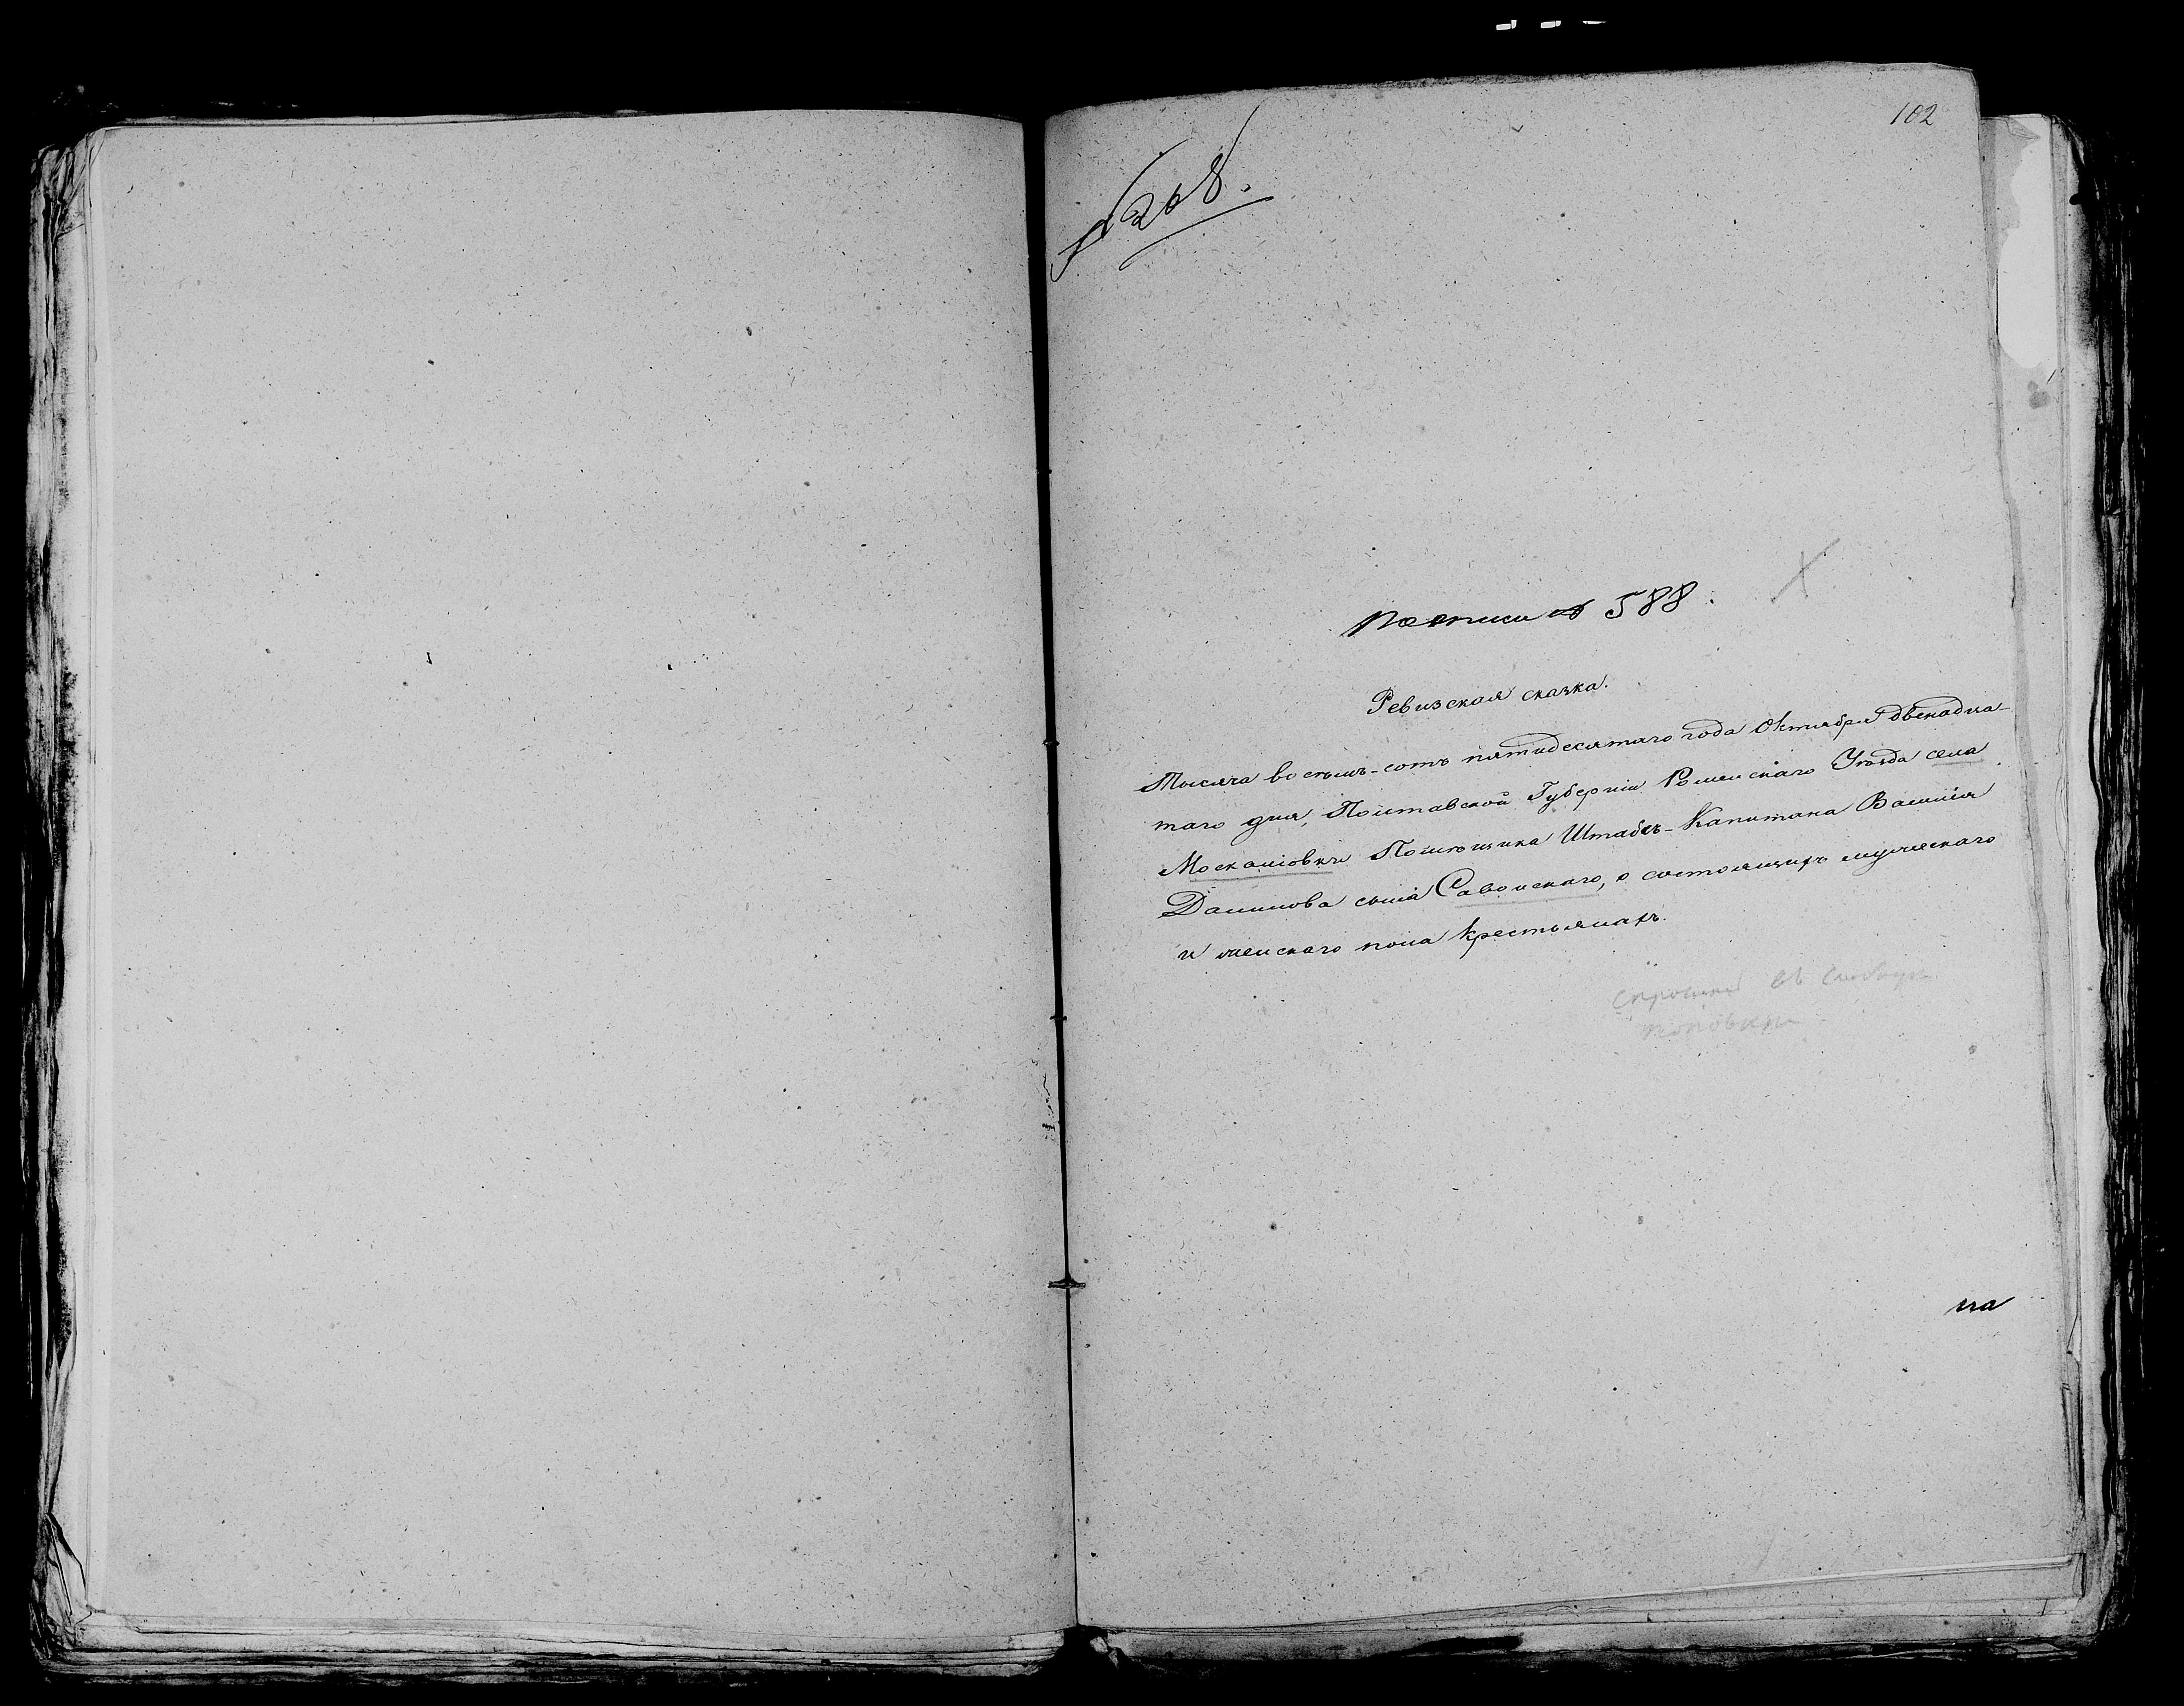 102
№ 208.
По описи № 588.
Ревизская сказка.
Тысяча восемь-сотъ пятидесятаго года Октября двенадца-
таго дня, Полтавской Губерніи Роменскаго Уѣзда села
Москалювки Помѣщика Штабсъ-Капитана Василія
Данилова сына Савойскаго, о состоящихъ мужескаго
и женскаго пола крестьянахъ.
въ
на